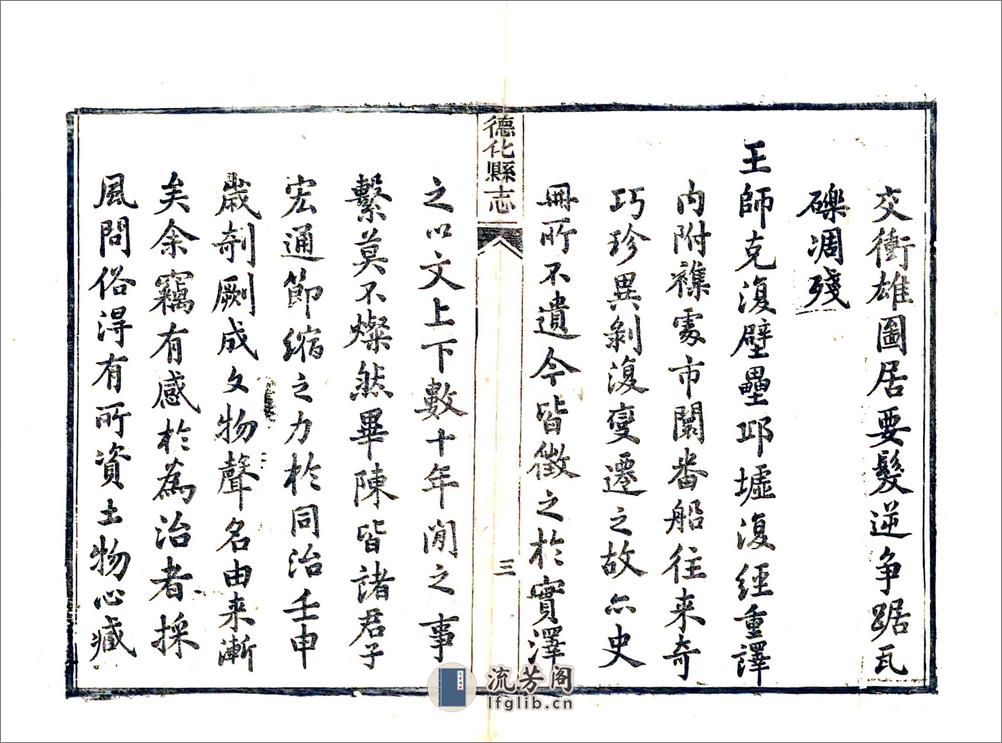 交衝雄圖居要髮逆争踞瓦
礫凋殘
王師克復壁壘邱墟復經重譯
內附襍處市闤番船往来奇
巧珍異剝復變遷之故亦史
冊所不遺今皆徵之於實澤
德化縣志
三
之以文上下數十年間之事
繫莫不燦然畢陳皆諸君子
宏通節縮之力於同治壬申
歲剞劂成文物聲名由来漸
矣余竊有感於為治者採
風問俗得有所資土物心臧
流芳阁
lfglib.cn